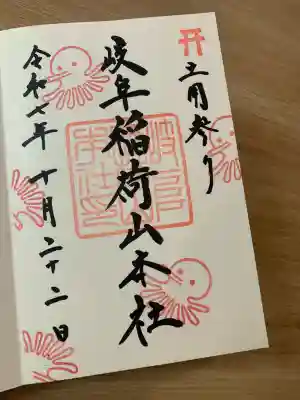 土用参り
岐阜稲荷山本社
令和七年十月二十二日